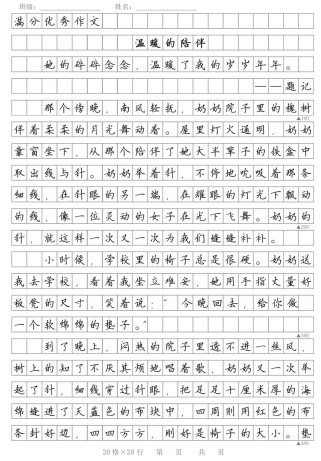 班级： 姓名：
满分优秀作文
温暖的陪伴
她的碎碎念念，温暖了我的岁岁年年。
——题记
那个傍晚，南风轻抚，奶奶院子里的槐树
伴着柔柔的月光舞动着。屋里灯火通明，奶奶
靠窗坐下，从那个陪伴了她大半辈子的铁盒中
取出线与针。奶奶举着针，不停地吮吸着那条
细线，在针眼的另一端，在耀眼的灯光下飘动
的线，像一位灵动的女子在光下飞舞。奶奶的
针，就这样一次又一次为我们缝缝补补。
小时候，学校里的椅子总是很硬。奶奶送
我去学校，看着我坐立难安，她用手指丈量好
板凳的尺寸，笑着说：“今晚回去，给你做
一个软绵绵的垫子。”
到了晚上，闷热的院子里透不进一丝风，
树上的知了不厌其烦地唱着歌，奶奶又一次举
起了针，细线穿过针眼，把足足十厘米厚的海
绵缝进了天蓝色的布块中，四周则用红色的布
条封好边，四四方方，刚好是椅子的大小。垫
20格×20行 第 页 共 页